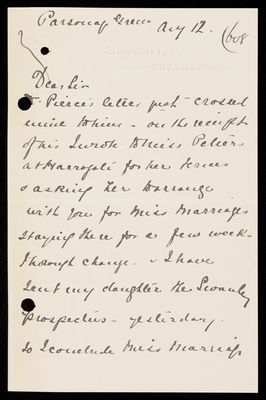 Parsonage Green Aug 12. 1608
BROOMFIELD
CHELMSFORD
Dear Sir
Dr. Pierce's letter just crossed
mine to him - on the receipt
of his I wrote to Miss Peters
at Harrogate for her terms
& asking her to arrange
with you for Miss Marriage
staying there for a few weeks
thorough change. - I have
sent my daughter the Swanley
prospectus - yesterday.
So I conclude Miss Marriage